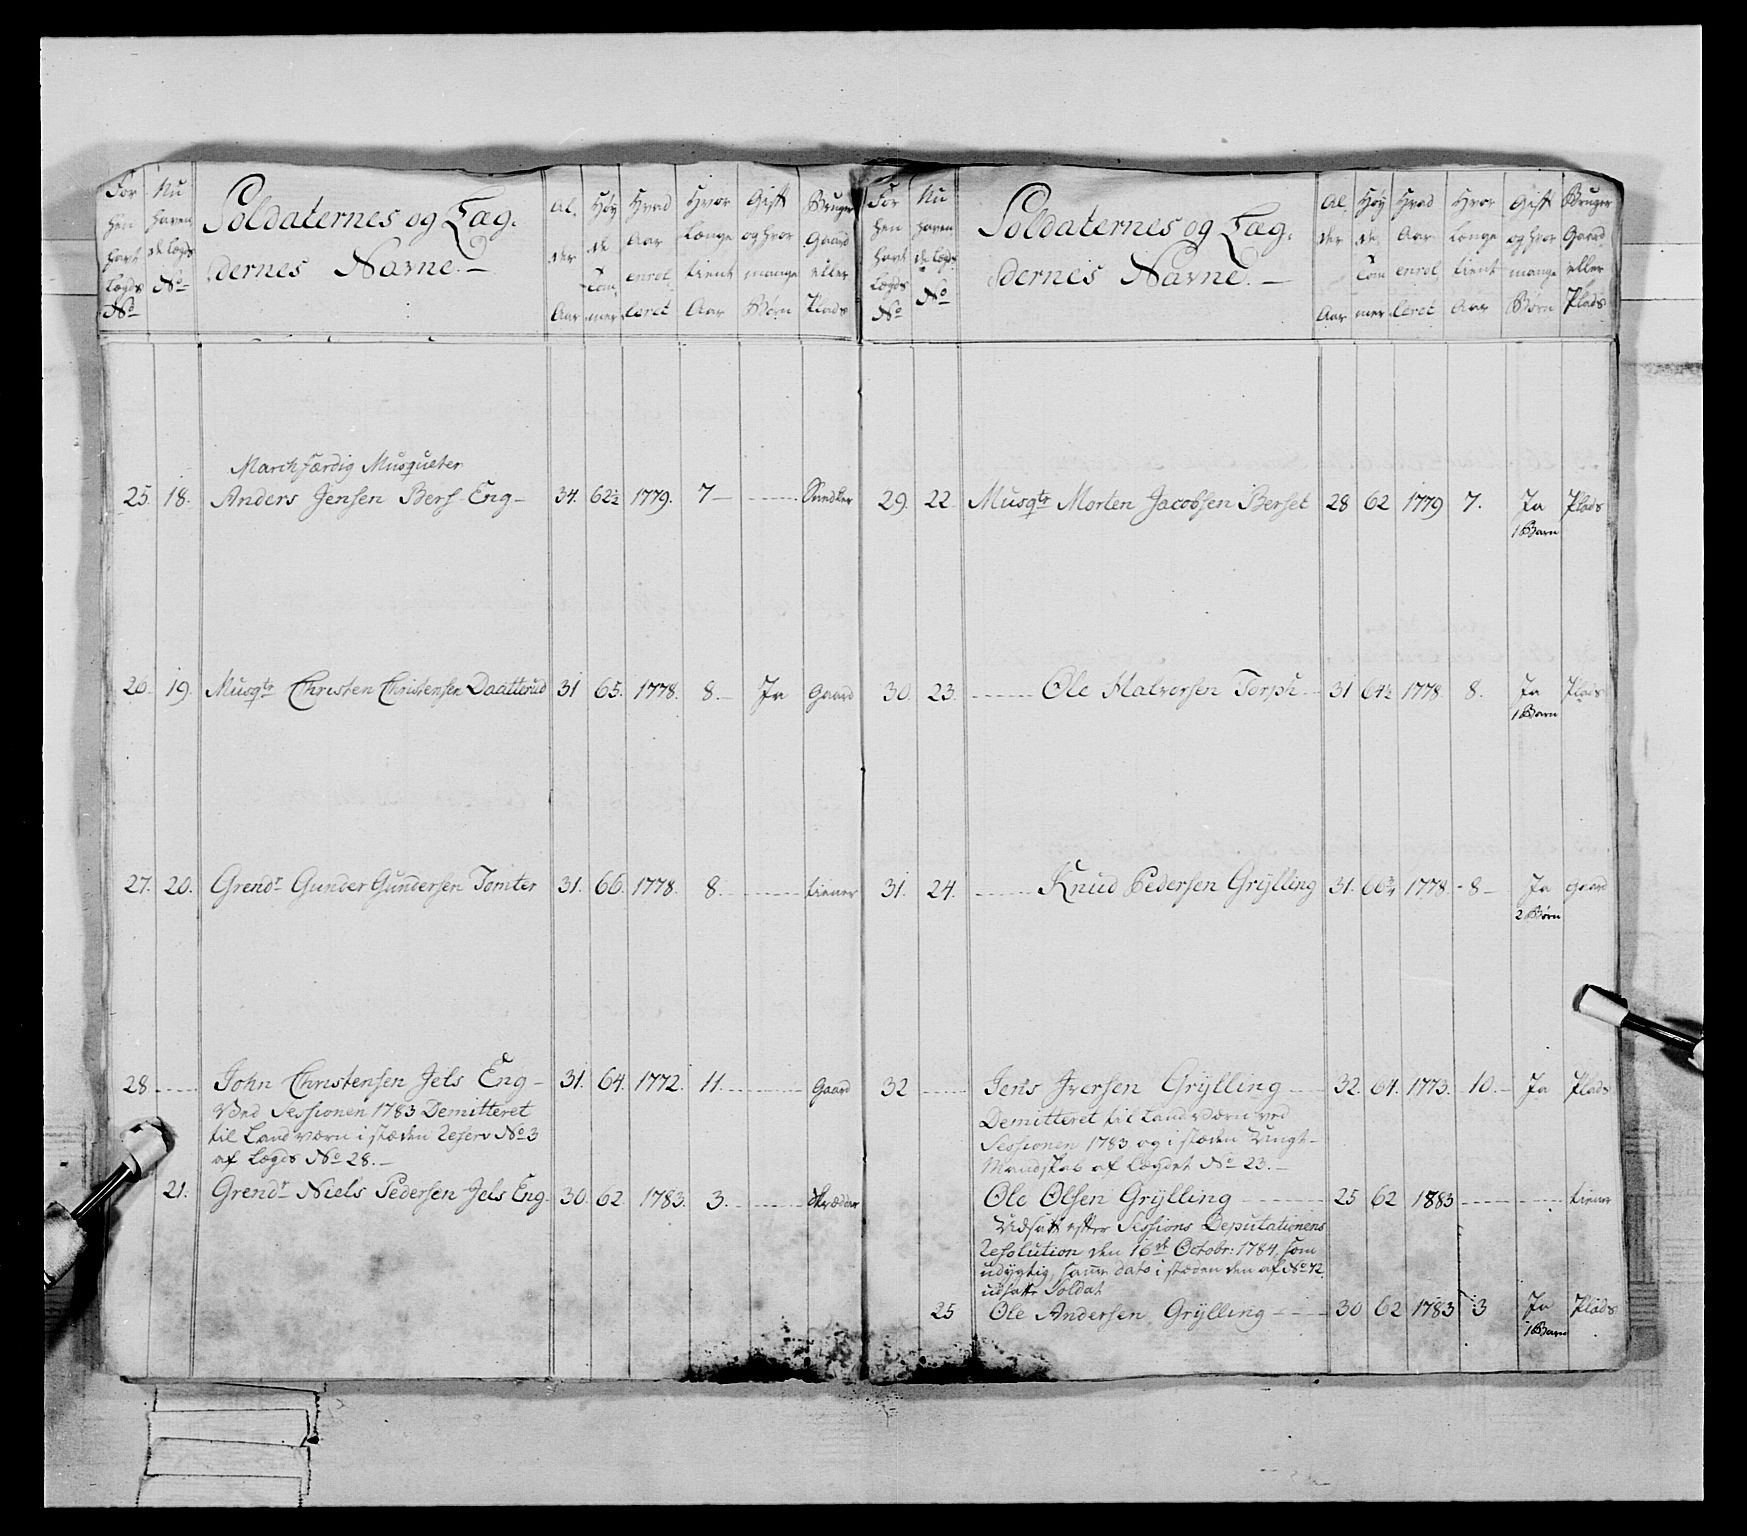 For hen havt Lægds No
Nu haven de Lægds No
Soldaternes og Læg-
dernes Navne.
Al- der Aar
Høy de Tom mer
Hvad Aar enrol leret
Hvor Længe tient Aar
Gift og hvor mange Børn
Bruger Gaard eller Plads
March færdig Musqueter
25. 18. Anders Jensen Bers Eng 34. 62½ 1779. 7 Snedker
26. 19. Musqtr Christen Christensen Daatterud 31 65. 1778. 8. Ja Gaard
27. 20. Grendr Gunder Gundersen Tomter 31. 66. 1778. 8. tiener
28 John Christensen Jels Eng 31. 64. 1772. 11. Gaard
Ved Sessionen 1783 Demitteret
til Land værn i stæden Reserv No 3
af Lægds No 28.
21. Grendr Niels Pedersen Jels Eng 30 62 1783. 3. Skrædder
For hen havt Lægds No
Nu haven de Lægds No
Soldaternes og Læg-
dernes Navne.
Al der Aar
Høy de Tom mer
Hvad Aar enrol leret
Hvor Længe tient Aar
Gift og hvor mange Børn
Bruger Gaard eller Plads
29. 22 Musqtr Morten Jacobsen Berset 28 62 1779 7. Ja Plads
1 Barn
30 23. Ole Halvorsen Torph 31 64½ 1778 8. Ja Plads
1 Barn
31. 24. Knud Pedersen Grÿlling 31. 66¾ 1778. 8 Ja Gaard
2 Børn
32 Jens Iversen Grÿlling 32. 64. 1773. 10. Ja Plads
Demitteret til Land værn ved
Sessionen 1783 og i stæden Ungt
Mandskab af Lægdet No 23.
Ole Olsen Grÿlling 25 62 1883 tiener
Udsatt efter Sessions Deputationens
Resolution den 16de Octobr: 1784, som
udygtig, samme dato i stæden den af No 42
udsatte Soldat
25 Ole Andersen Grÿlling 30 62 1783 3 Ja Plads
1 Barn